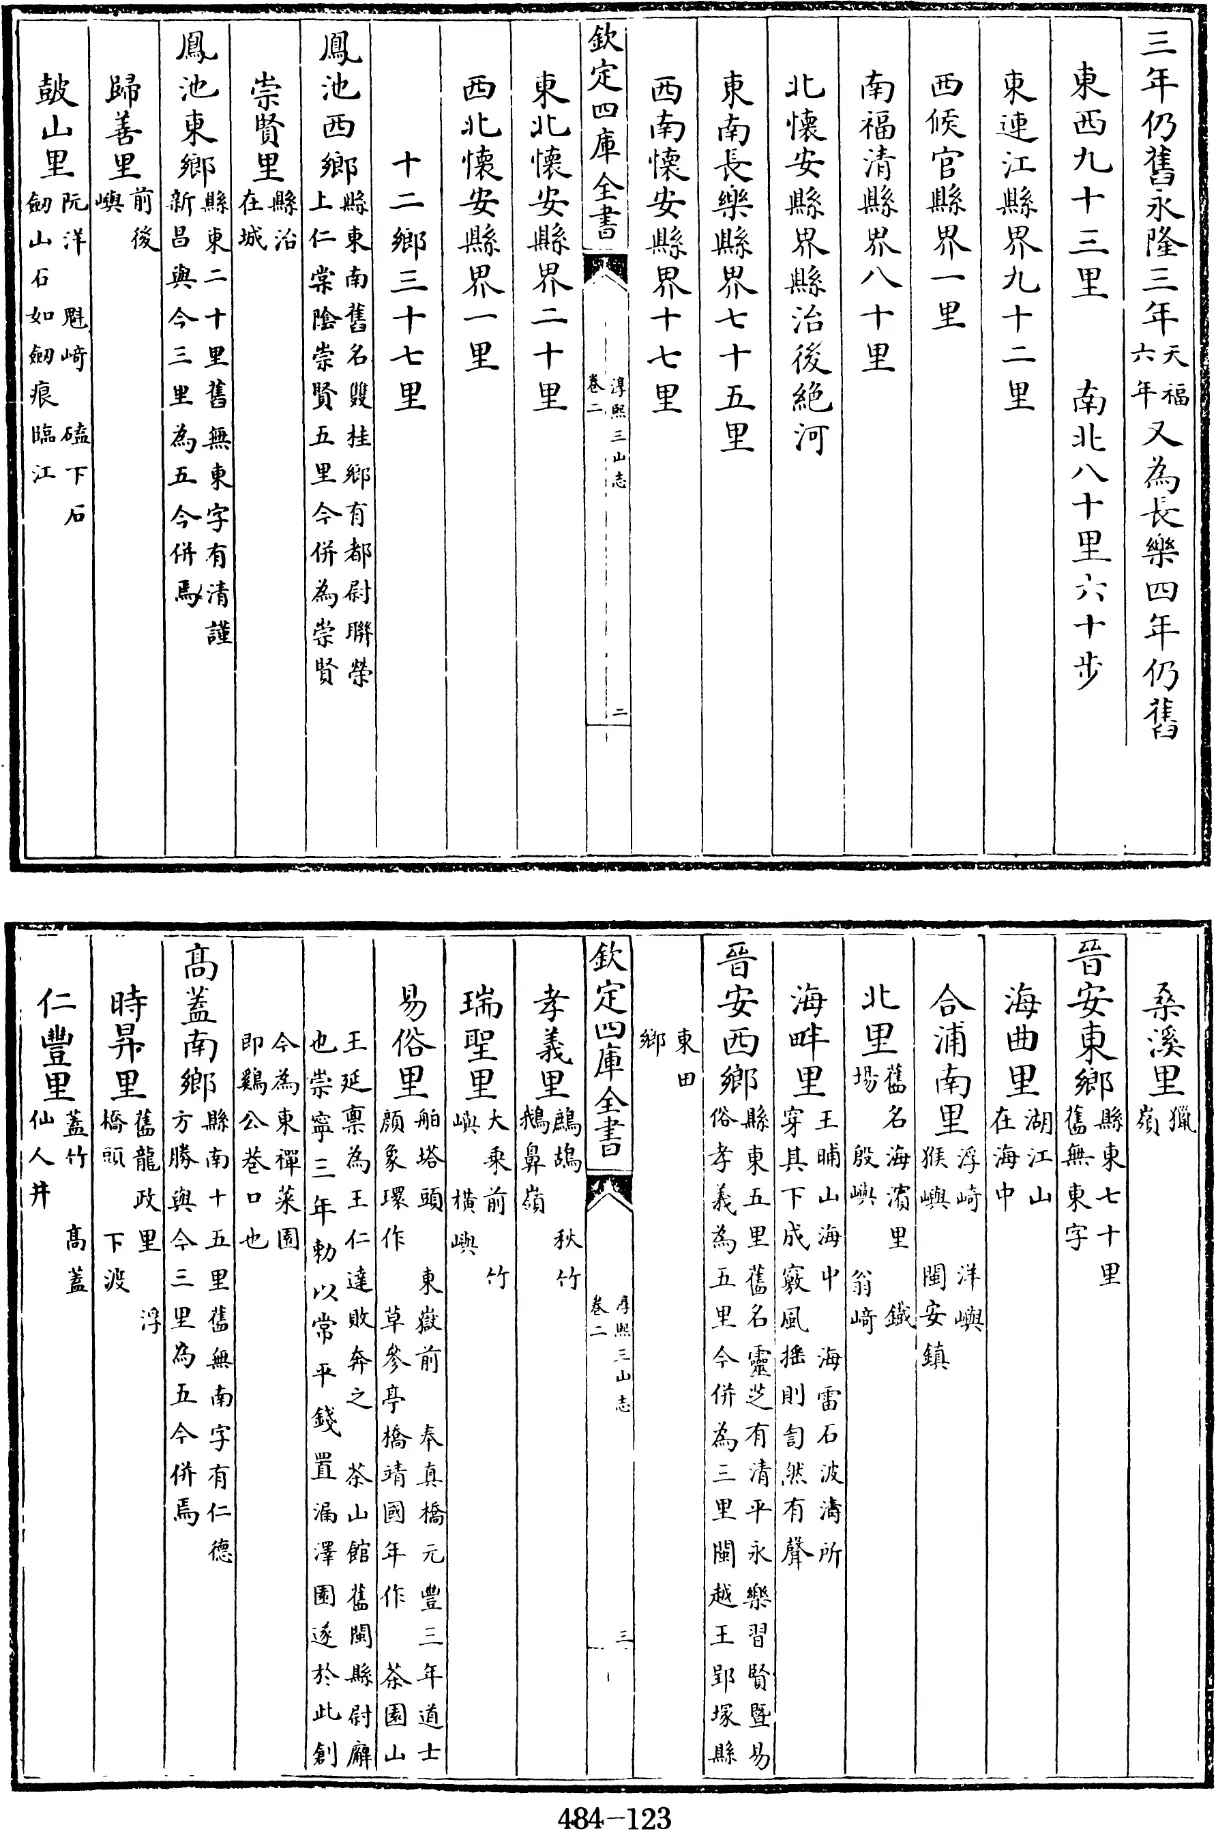 三年仍舊永隆三年天福六年又為長樂四年仍舊
東西九十三里 南北八十里六十步
東連江縣界九十二里
西候官縣界一里
南福清縣界八十里
北懷安縣界縣治後絶河
東南長樂縣界七十五里
西南懷安縣界十七里
欽定四庫全書
淳熙三山志
卷二
二
東北懷安縣界二十里
西北懷安縣界一里
十二鄉三十七里
鳳池西鄉縣東南舊名雙桂鄉有都尉聯榮上仁棠陰崇賢五里今併為崇賢
崇賢里縣治在城
鳳池東鄉縣東二十里舊無東字有清謹新昌與今三里為五今併焉
歸善里前後嶼
鼓山里阮洋 魁崎 磕下石劒山石如劒痕臨江
桑溪里獵嶺
晉安東鄉縣東七十里舊無東字
海曲里湖江山在海中
合浦南里浮崎 洋嶼猴嶼 閩安鎮
北里舊名海濱里 鐵場 殷嶼 翁崎
海畔里王晡山海中 海雷石波濤所穿其下成竅風揺則訇然有聲
晉安西鄉縣東五里舊名靈芝有清平永樂習賢暨易俗孝義為五里今併為三里閩越王郢塚縣
東田鄉
欽定四庫全書
淳熙三山志
卷二
三
孝義里鷓鴣 秋竹鵝鼻嶺
瑞聖里大乘前 竹嶼 横嶼
易俗里舶塔頭 東嶽前 奉真橋元豐三年道士顔象環作 草參亭橋靖國年作 茶園山
王延禀為王仁達敗奔之 茶山館舊閩縣尉廨也崇寧三年勅以常平錢置漏澤園遂於此創
今為東禪菜園即鷄公巷口也
髙蓋南鄉縣南十五里舊無南字有仁德方勝與今三里為五今併焉
時昇里舊龍政里 浮橋頭 下渡
仁豐里蓋竹 髙蓋仙人井
484-123